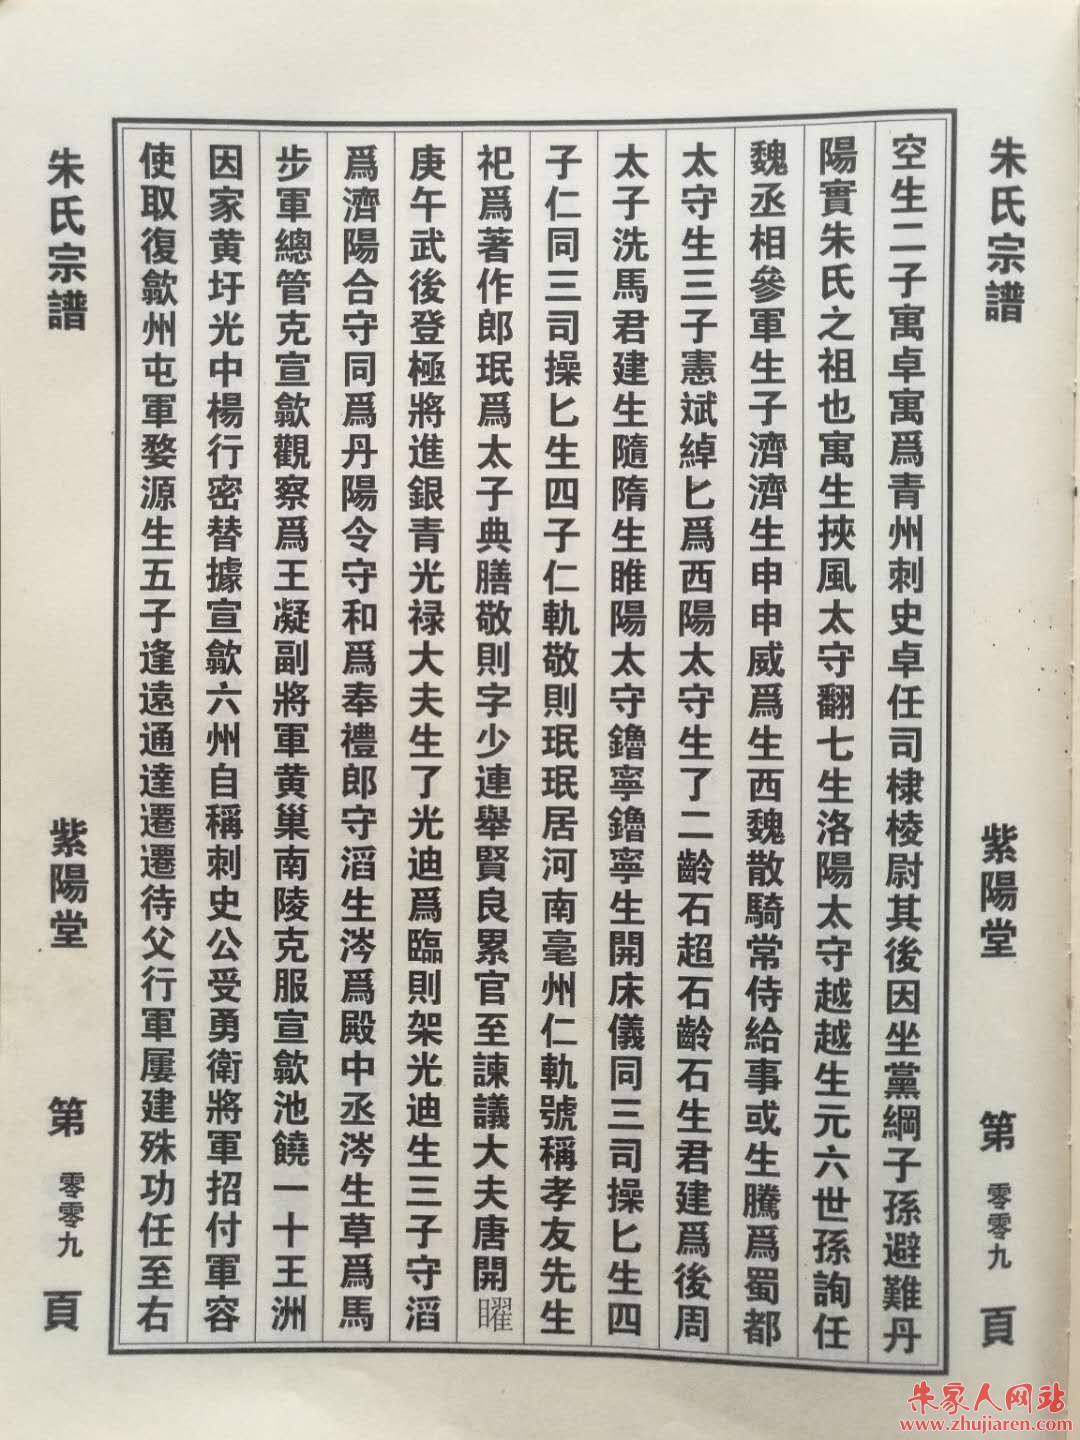 朱氏宗譜 紫陽堂 第零零九頁
空生二子寓卓寓爲青州刺史卓任司棣棱尉其後因坐黨綱子孫避難丹
陽實朱氏之祖也寓生挾風太守翻七生洛陽太守越越生元六世孫詢任
魏丞相參軍生子濟濟生申申威爲生西魏散騎常侍給事或生騰爲蜀都
太守生三子憲斌綽匕爲西陽太守生了二齡石超石齡石生君建爲後周
太子洗馬君建生隨隋生睢陽太守鑥寧鑥寧生開床儀同三司操匕生四
子仁同三司操匕生四子仁軌敬則珉珉居河南毫州仁軌號稱孝友先生
祀爲著作郎珉爲太子典膳敬則字少連舉賢良累官至諫議大夫唐開曜
庚午武後登極將進銀青光禄大夫生了光迪爲臨則架光迪生三子守滔
爲濟陽合守同爲丹陽令守和爲奉禮郎守滔生涔爲殿中丞涔生草爲馬
步軍總管克宣歙觀察爲王凝副將軍黄巢南陵克服宣歙池饒一十王洲
因家黄圩光中楊行密替據宣歙六州自稱刺史公受勇衛將軍招付軍容
使取復歙州屯軍婺源生五子逢遠通達遷遷待父行軍屢建殊功任至右
朱氏宗譜 紫陽堂 第零零九頁
朱家人网站
www.zhujiaren.com